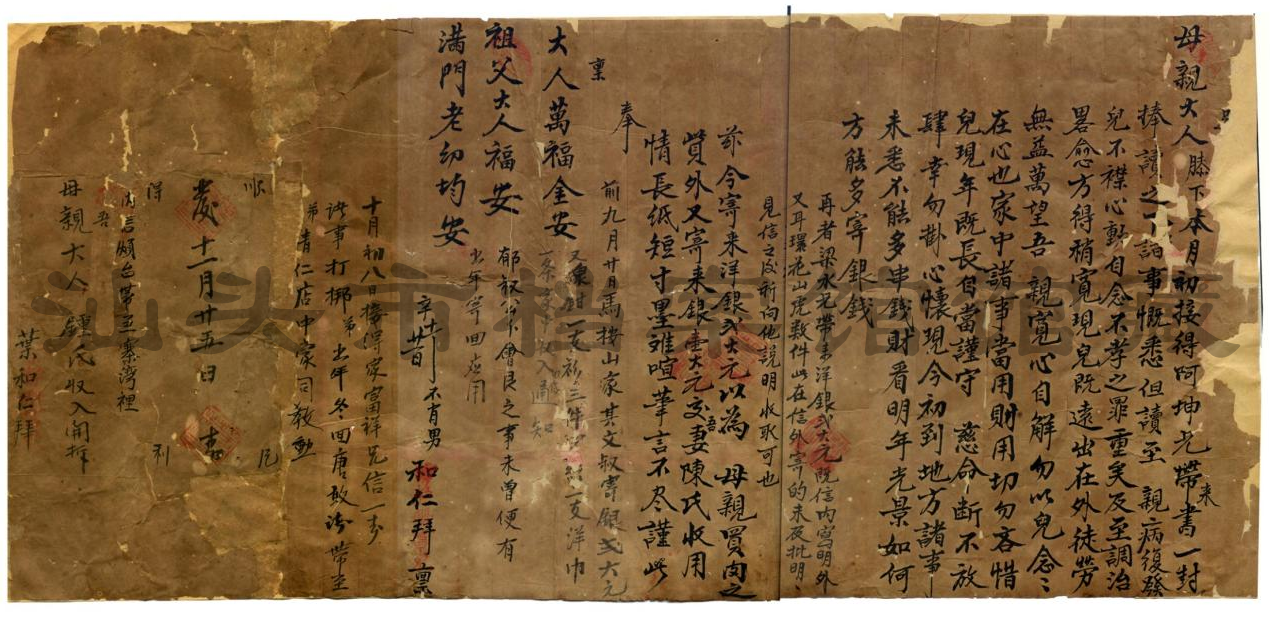 母親大人膝下本月初接得阿坤兄帶來書一封
捧讀之下諸事慨悉但讀至 親病復發
兒不襟心動自念不孝之罪重矣及至調治
畧愈方得稍寬現兒既遠出在外徒勞
無益萬望吾 親寬心自解勿以兒念念
在心也家中諸事當用財用切勿吝惜
兒現年既長自當謹守 慈命断不放
肆幸勿掛心懷現今初到地方諸事
未悉不能多串錢財看明年光景如何
方能多寄銀錢
再者梁水兄帶來洋銀弍大元既信內寫明外
又耳環花山虎数件此在信外寄的未及批明
見信之後祈向他説明收取可也
茲今寄来洋銀弍大元以為 母親買肉之
費外又寄来銀壹大元交吾妻陳氏收用
情長紙短寸墨难喧華言不尽謹此
奉
稟
大人萬福金安
祖父大人福安
满門老幼均安
前九月廿日馬接山家其文叔寄銀弍大元
又 一支衫三件 一支洋巾
一条 入通知
郁叔公下會艮之事未曾便有
出年寄回应用
辛十一廿一日 不肖男 和仁拜 稟
十月初八日接得家富祥兄信一封
諸事打梛弟出年冬回唐敢滂帶至
弟清仁店中家司教動
順 風
歲十一月廿五日 吉
得 利
內言煩台帶至寨湾裡
吾
母親大人 氏收入開拆
葉和仁拜
汕头市档案馆馆藏